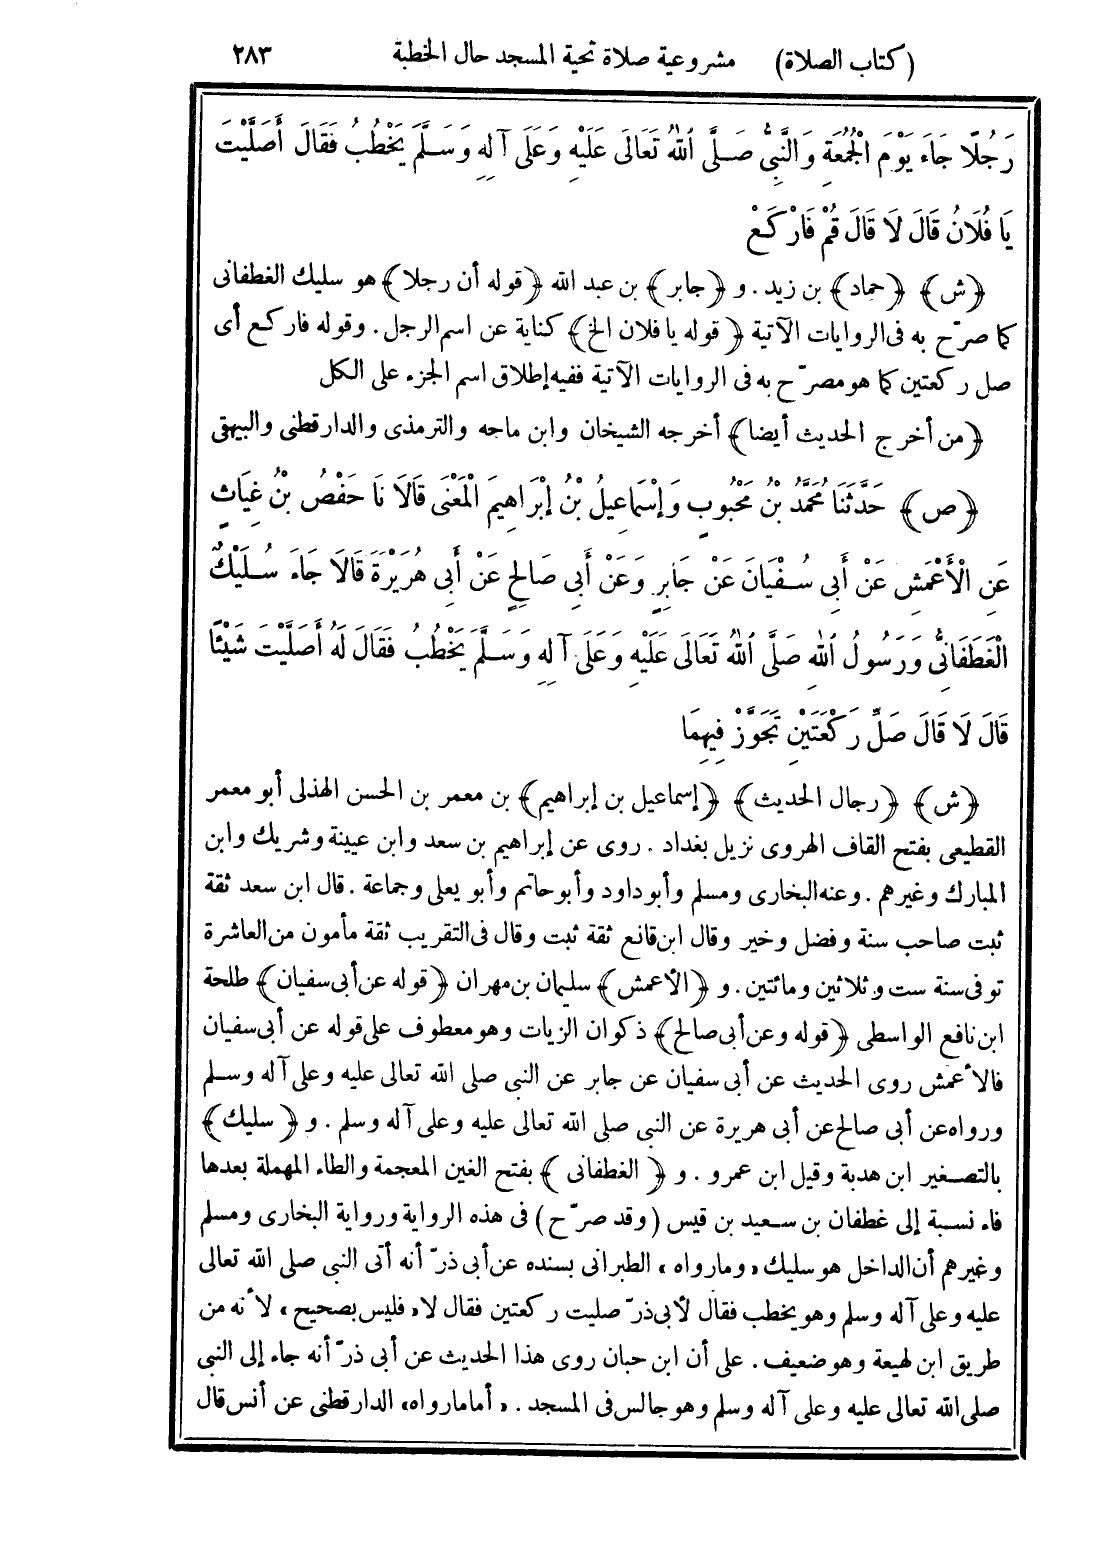 (كتاب الصلاة) مشروعية صلاة تحية المسجد حال الخطبة ٢٨٣
رَجُلًا جَاءَ يَوْمَ الْجُمُعَةِ وَالنَّبِيُّ صَلَّى اللهُ تَعَالَى عَلَيْهِ وَعَلَى آلِهِ وَسَلَّمَ يَخْطُبُ فَقَالَ أَصَلَّيْتَ
يَا فُلَانُ قَالَ لَا قَالَ قُمْ فَارْكَعْ
﴿ش﴾ ﴿حماد﴾ بن زيد. و ﴿جابر﴾ بن عبد الله ﴿قوله أن رجلا﴾ هو سليك الغطفانى
كما صرّح به فى الروايات الآتية ﴿قوله يا فلان الخ﴾ كناية عن اسم الرجل. وقوله فاركع أى
صل ركعتين كما هو مصرّح به فى الروايات الآتية ففيه إطلاق اسم الجزء على الكل
﴿من أخرج الحديث أيضا﴾ أخرجه الشيخان وابن ماجه والترمذى والدارقطنى والبيهقى
﴿ص﴾ حَدَّثَنَا مُحَمَّدُ بْنُ مَحْبُوبٍ وَإِسْمَاعِيلُ بْنُ إِبْرَاهِيمَ الْمَعْنَى قَالَا نَا حَفْصُ بْنُ غِيَاثٍ
عَنِ الْأَعْمَشِ عَنْ أَبِى سُفْيَانَ عَنْ جَابِرٍ وَعَنْ أَبِى صَالِحٍ عَنْ أَبِى هُرَيْرَةَ قَالَا جَاءَ سُلَيْكٌ
الْغَطَفَانِىُّ وَرَسُولُ اللهِ صَلَّى اللهُ تَعَالَى عَلَيْهِ وَعَلَى آلِهِ وَسَلَّمَ يَخْطُبُ فَقَالَ لَهُ أَصَلَّيْتَ شَيْئًا
قَالَ لَا قَالَ صَلِّ رَكْعَتَيْنِ تَجَوَّزْ فِيهِمَا
﴿ش﴾ ﴿رجال الحديث﴾ ﴿إسماعيل بن إبراهيم﴾ بن معمر بن الحسن الهذلى أبو معمر
القطيعى بفتح القاف الهروى نزيل بغداد. روى عن إبراهيم بن سعد وابن عيينة وشريك وابن
المبارك وغيرهم. وعنه البخارى ومسلم وأبو داود وأبو حاتم وأبو يعلى وجماعة. قال ابن سعد ثقة
ثبت صاحب سنة وفضل وخير وقال ابن قانع ثقة ثبت وقال فى التقريب ثقة مأمون من العاشرة
توفى سنة ست وثلاثين ومائتين. و ﴿الأعمش﴾ سليمان بن مهران ﴿قوله عن أبى سفيان﴾ طلحة
ابن نافع الواسطى ﴿قوله وعن أبى صالح﴾ ذكوان الزيات وهو معطوف على قوله عن أبى سفيان
فالأعمش روى الحديث عن أبى سفيان عن جابر عن النبى صلى الله تعالى عليه وعلى آله وسلم
ورواه عن أبى صالح عن أبى هريرة عن النبى صلى الله تعالى عليه وعلى آله وسلم. و ﴿سليك﴾
بالتصغير ابن هدبة وقيل ابن عمرو. و ﴿الغطفانى﴾ بفتح الغين المعجمة والطاء المهملة بعدها
فاء نسبة إلى غطفان بن سعيد بن قيس (وقد صرّح) فى هذه الرواية ورواية البخارى ومسلم
وغيرهم أن الداخل هو سليك «وما رواه» الطبرانى بسنده عن أبى ذرّ أنه أتى النبى صلى الله تعالى
عليه وعلى آله وسلم وهو يخطب فقال لأبى ذرّ صليت ركعتين فقال لا «فليس بصحيح» لأنه من
طريق ابن لهيعة وهو ضعيف. على أن ابن حبان روى هذا الحديث عن أبى ذرّ أنه جاء إلى النبى
صلى الله تعالى عليه وعلى آله وسلم وهو جالس فى المسجد. «أما ما رواه» الدارقطنى عن أنس قال